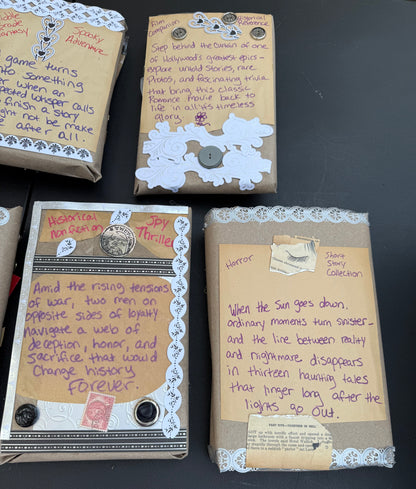 ddle
rade
antasy
Spooky
Adventure
game turns
to something
r when an
ected whisper calls
o finish a story
ght not be make
e after all.
Film
Companion
Historical
Reference
Step behind the curtain of one
of Hollywood's greatest epics-
explore untold stories, rare
Photos, and fascinating trivia
that bring this classic
Romance movie back to
life in all its timeless
glory
Historical
nonfiction
Spy
Thriller
Amid the rising tensions
of war, two men on
opposite sides of loyalty
navigate a web of
deception, honor, and
sacrifice that would
Change history
forever.
Horror
Short
Story
Collection
When the Sun goes down,
ordinary moments turn sinister-
and the line between reality
and nightmare disappears
in thirteen haunting tales
that linger long after the
lights go out.